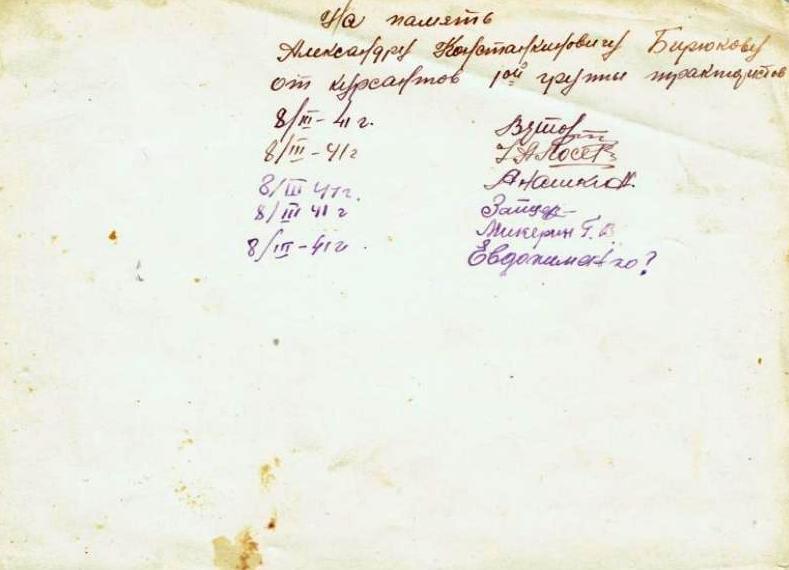 На память
Александру Константиновичу Бирюкову
от курсантов 1ой групы трактористов
8/III – 41 г.
8/III – 41 г
8/III 41 г. Анашкин.
8/III 41 г Зайцев
Микерин Г. В
8/III – 41 г. Евдокименко?